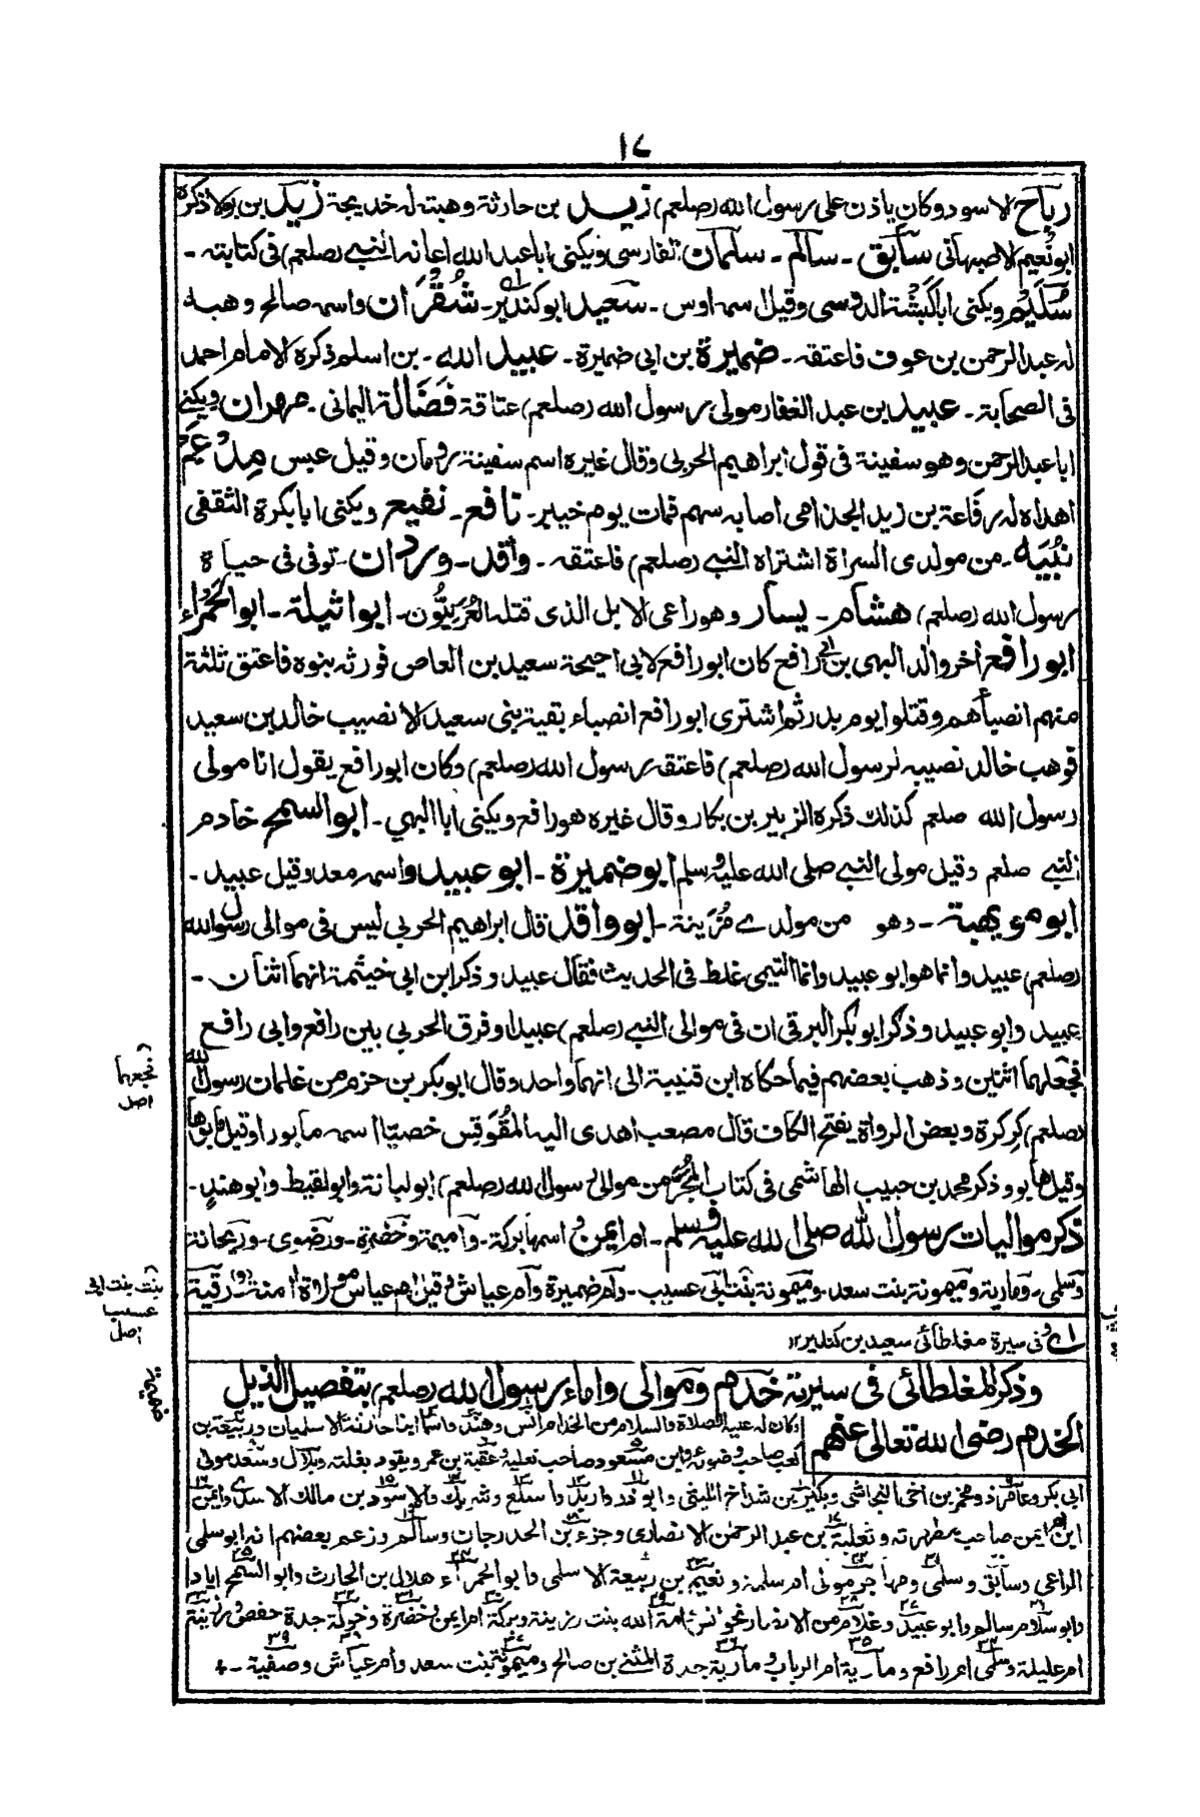 ١٧
رباح الاسود وكان ياذن على رسول الله (صلعم) زيد بن حارثة وهبته له خديجة زيد بن بولا ذكره
ابو نعيم الاصبهاني سابق - سالم - سلمان الفارسي ويكنى ابا عبد الله اعانه النبي (صلعم) في كتابته -
سليم ويكنى ابا كبشة الدوسي وقيل اسمه اوس - سعيد ابو كندير - شقران واسمه صالح وهبه
له عبد الرحمن بن عوف فاعتقه - ضميرة بن ابي ضميرة - عبيد الله - بن اسلم ذكره الامام احمد
في الصحابة - عبيد بن عبد الغفار مولى رسول الله (صلعم) عتاقة فضالة اليماني - مهران ويكنى
ابا عبد الرحمن وهو سفينة في قول ابراهيم الحربي وقال غيره اسم سفينة رومان وقيل عبس مدعم
اهداه له رفاعة بن زيد الجذامي اصابه سهم فمات يوم خيبر - نافع - نفيع ويكنى ابا بكرة الثقفي
نبيه - من مولدي السراة اشتراه النبي (صلعم) فاعتقه - واقد - وردان - توفي في حياة
رسول الله (صلعم) هشام - يسار وهو راعي الابل الذي قتله العرنيون - ابو اثيلة - ابو الحمراء
ابو رافع اخر والد البهي بن ابي رافع كان ابو رافع لابي احيحة سعيد بن العاص فورثه بنوه فاعتق ثلثة
منهم انصباءهم وقتلوا يوم بدر ثم اشترى ابو رافع انصباء بقية بني سعيد الا نصيب خالد بن سعيد
فوهب خالد نصيبه لرسول الله (صلعم) فاعتقه رسول الله (صلعم) وكان ابو رافع يقول انا مولى
رسول الله صلعم كذلك ذكره الزبير بن بكار وقال غيره هو رافع ويكنى ابا البهي - ابو السمح خادم
النبي صلعم وقيل مولى النبي صلى الله عليه وسلم ابو ضميرة - ابو عبيد واسمه معد وقيل عبيد -
ابو مويهبة - وهو من مولدي مزينة - ابو واقد قال ابراهيم الحربي ليس في موالي رسول الله
(صلعم) عبيد وانما هو ابو عبيد وانما التيمي غلط في الحديث فقال عبيد وذكر ابن ابي خيثمة انهما اثنان -
عبيد وابو عبيد وذكر ابو بكر البرقي ان في موالي النبي (صلعم) عبيدا وفرق الحربي بين رافع وابي رافع
فجعلهما اثنين وذهب بعضهم فيما حكاه ابن قتيبة الى انهما واحد وقال ابو بكر بن حزم من غلمان رسول الله
(صلعم) كركرة وبعض الرواة بفتح الكاف قال مصعب اهدى اليه المقوقس خصيا اسمه مابورا وقيل
وقيل هابو وذكر محمد بن حبيب الهاشمي في كتاب المحبر من موالي رسول الله (صلعم) ابو لبابة وابو لقيط وابو هند -
ذكر موليات رسول الله صلى الله عليه وسلم - ام ايمن و اسمها بركة - واميمة وخضرة - ورضوى - وريحانة
وسلمى - ومارية وميمونة بنت سعد - وميمونة بنت ابي عسيب - وام ضميرة وام عياش وقيل ام عياش مولاة امنة (و) رقية
فجعلهما
اصل
بنت بنت ابي
عسيب
اصل
ضميرة
١ وفي سيرة مغلطائي سعيد بن كندير ١٢
وذكر المغلطائي في سيرته خدم وموالي واماء رسول الله (صلعم) بتفصيل الذيل
الخدم رضي الله تعالى عنهم
وكان له عليه الصلاة والسلام من الخدام انس وهند واسما ابنا حارثة الاسلميان وربيعة بن
كعب صاحب وضوءه وابن مسعود صاحب نعليه وعقبة بن عمرو يقود بغلته وبلال وسعد مولى
ابي بكر وعامر ذو مخمر بن اخي النجاشي وبكير بن شداخ الليثي وابو ذر واربد واسلع وشريك والاسود بن مالك الاسدي وايمن
ابن ام ايمن صاحب مطهرته وثعلبة بن عبد الرحمن الانصاري وجزء بن الحدرجان وسالم وزعم بعضهم انه ابو سلمى
الراعي وسابق وسلمى ومهاجر مولى ام سلمة ونعيم بن ربيعة الاسلمي وابو الحمراء هلال بن الحارث وابو السمح اياد
وابو سلام سالم وابو عبيد وغلام من الانصار نحو انس امة الله بنت رزينة وبركة ام ايمن وخضرة وخولة جدة حفص ورزينة
ام عليلة وسلمى ام رافع ومارية ام الرباب ومارية جدة المثنى بن صالح وميمونة بنت سعد وام عياش وصفية -